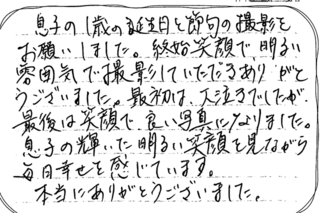 息子の1歳の誕生日と節句の撮影を
お願いしました。終始笑顔で明るい
雰囲気で撮影していただきありがと
うございました。最初は、大泣きでしたが、
最後は笑顔で良い写真になりました。
息子の輝いた明るい笑顔を見ながら
毎日幸せを感じています。
本当にありがとうございました。